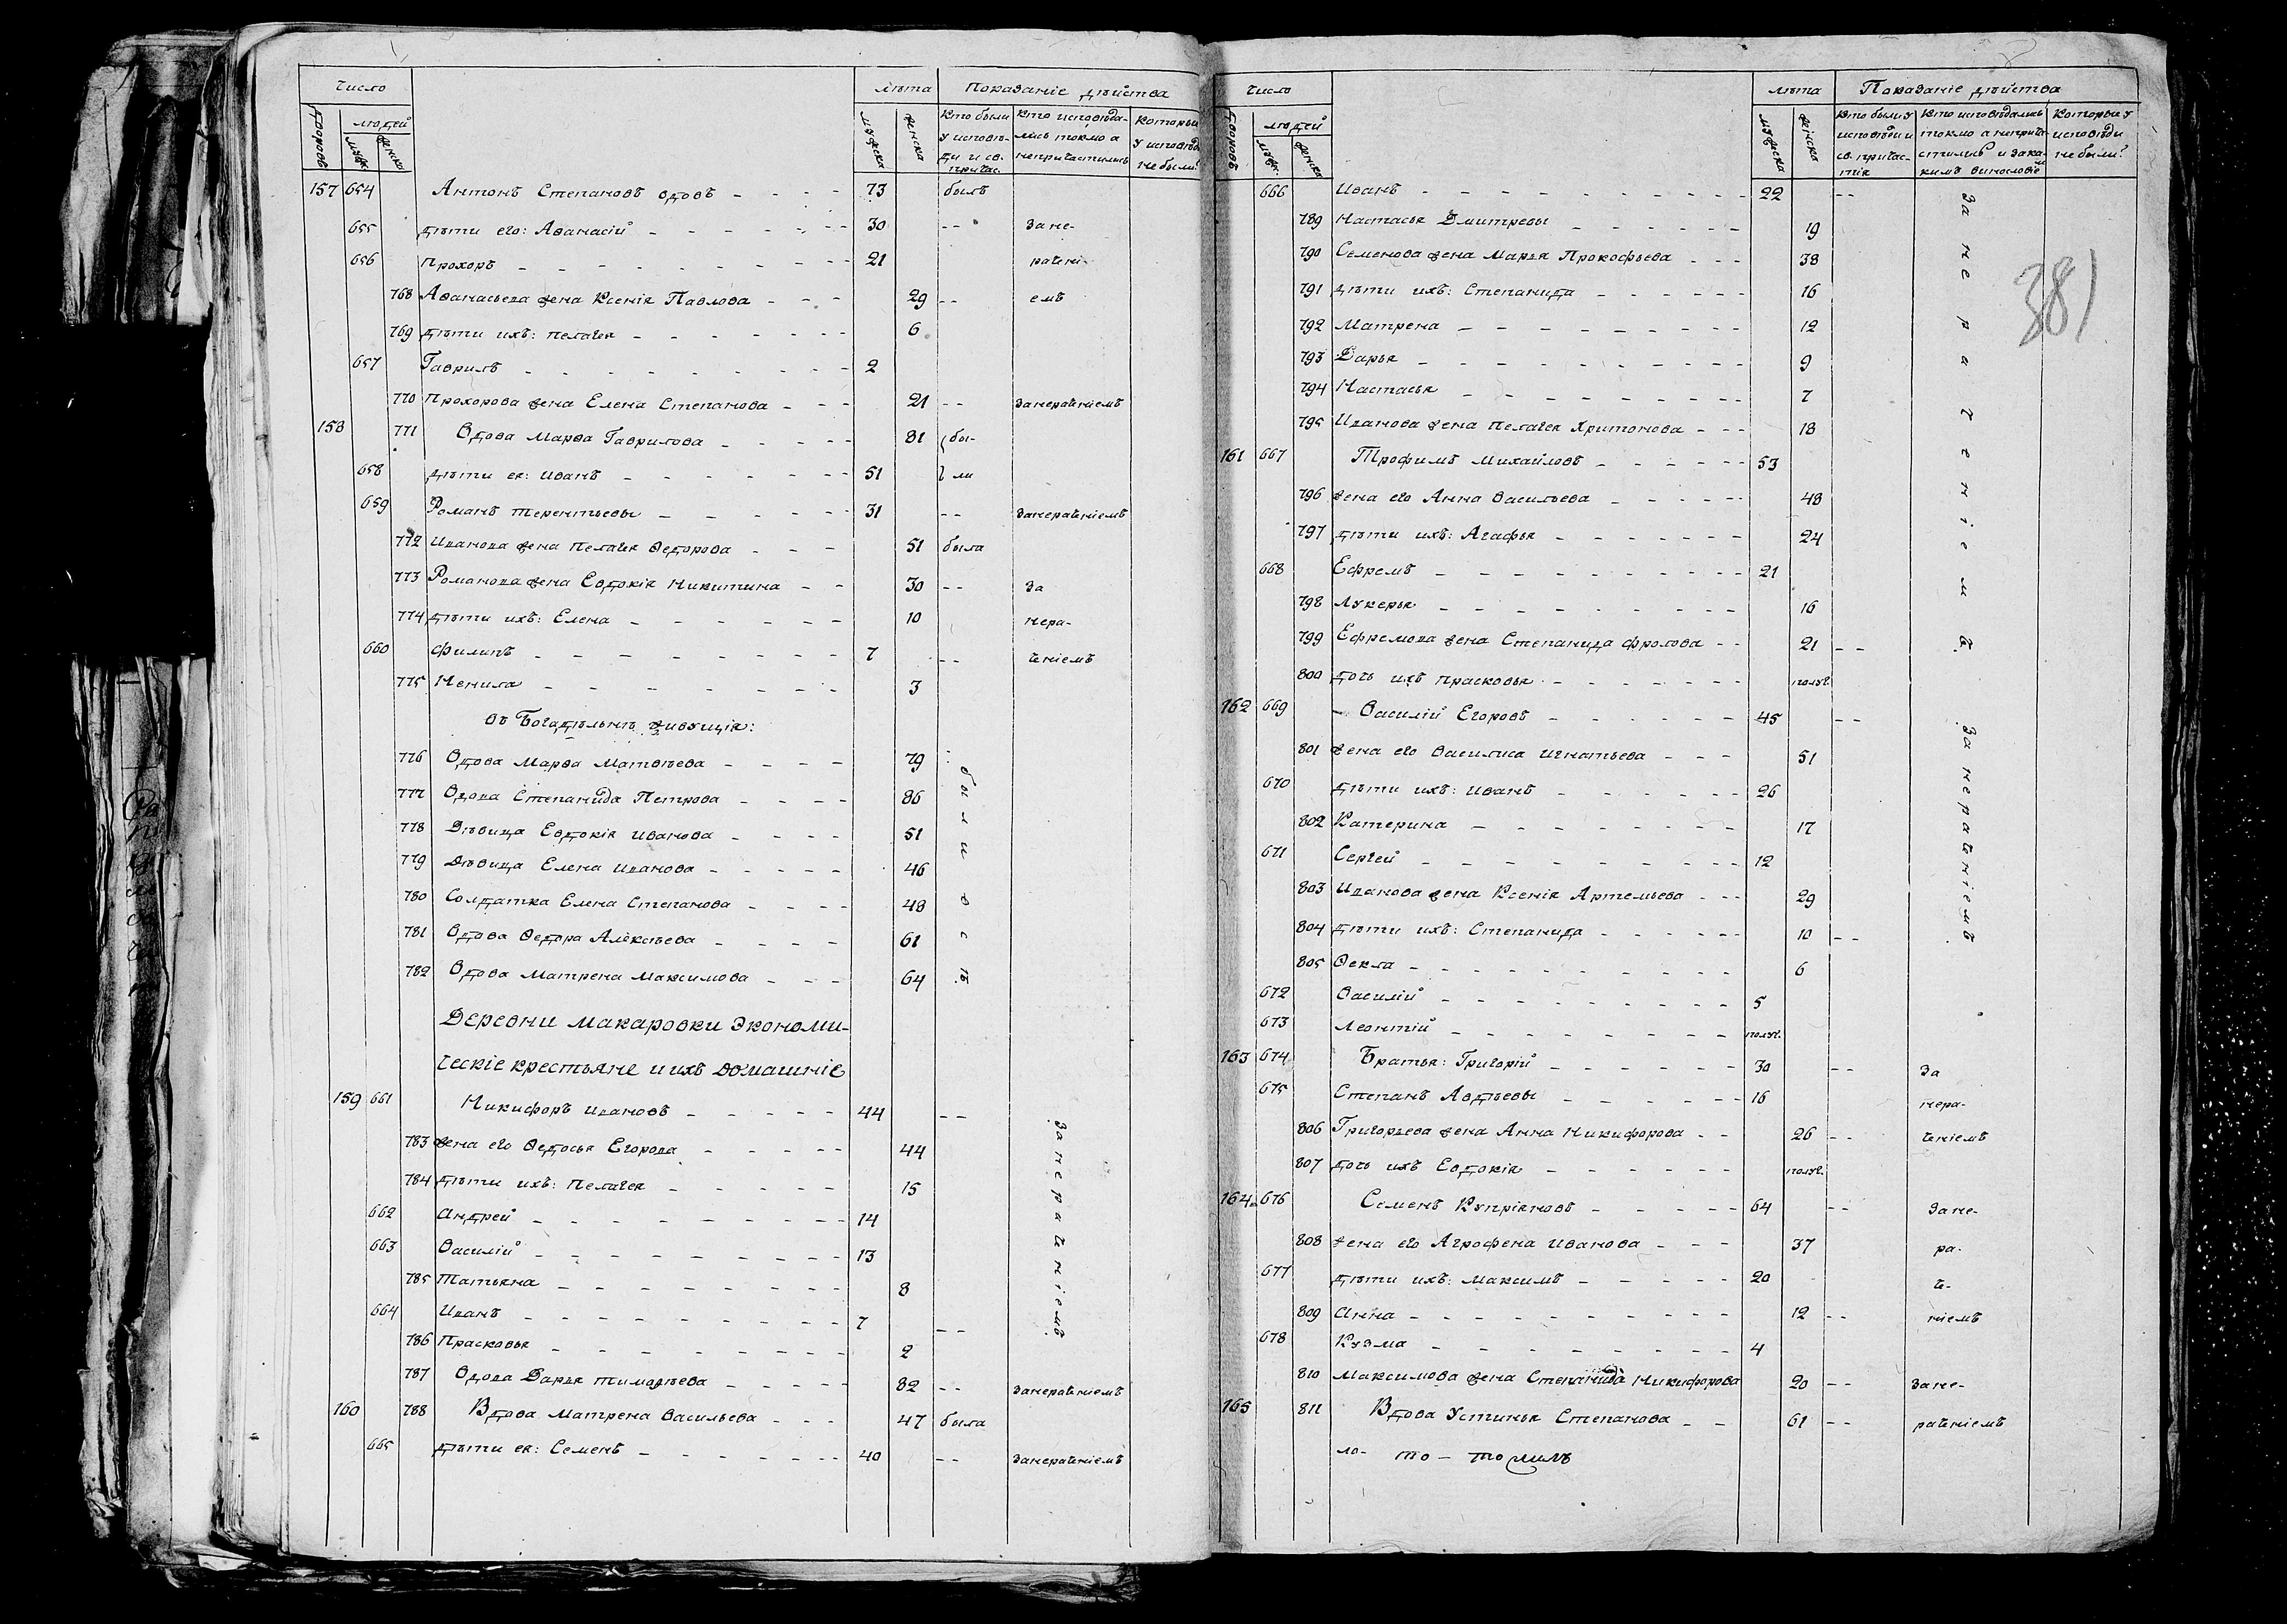 число
лѣта
Показаніе дѣйства
дворовъ
людей
муж.
женска
мужска
женска
Кто были у исповѣди и св. причас.
Кто исповѣдались токмо а непричастились
Которыи у исповѣди не были?
157 654 Антонъ Степановъ вдовъ 73 былъ
655 дѣти его: Аѳанасій 30 -- Зане-
656 Прохоръ 21 рачені-
768 Аѳанасьева жена Ксенія Павлова 29 -- емъ
769 дѣти ихъ: Пелагея 6
657 Гаврилъ 2
770 Прохорова жена Елена Степанова 21 -- Занераченіемъ
158 771 Вдова Марѳа Гаврилова 81 бы-
658 дѣти ея: Иванъ 51 ли
659 Романъ Терентьевы 31 -- Занераченіемъ
772 Иванова жена Пелагея Ѳедорова 51 была
773 Романова жена Евдокія Никитина 30 -- За
774 дѣти ихъ: Елена 10 нера-
660 Филипъ 7 -- ченіемъ
775 Ненила 3
въ Богадѣльнѣ живущія:
776 Вдова Марѳа Матвѣева 79
777 Вдова Степанида Петрова 86
778 Дѣвица Евдокія Иванова 51
779 Дѣвица Елена Иванова 46
780 Солдатка Елена Степанова 48
781 Вдова Ѳедора Алексѣева 61
782 Вдова Матрена Максимова 64
Деревни Макаровки экономи-
ческіе крестьяне и ихъ домашніе
159 661 Никифоръ Ивановъ 44 --
783 жена его Ѳедосья Егорова 44
784 дѣти ихъ: Пелагея 15
662 Андрей 14
663 Василій 13
785 Татьяна 8
664 Иванъ 7 --
786 Прасковья 2
Занераченіемъ
787 Вдова Дарья Тимоѳѣева 82 -- Занераченіемъ
160 788 Вдова Матрена Васильева 47 была
665 дѣти ея: Семенъ 40 -- Занераченіемъ
число
лѣта
Показаніе дѣйства
дворовъ
людей
муж.
женска
мужска
женска
Кто были у исповѣди и св. причастія
Кто исповѣдались токмо а непричастились и закакимъ винословіем
Которыи у исповѣди не были?
381
666 Иванъ 22 --
789 Настасья Дмитревы 19
790 Семенова жена Марья Прокофьева 38
791 дѣти ихъ: Степанида 16
792 Матрена 12
793 Дарья 9
794 Настасья 7
795 Иванова жена Пелагея Хритонова 18
161 667 Трофимъ Михайловъ 53
796 жена его Анна Васильева 48
797 дѣти ихъ: Агафья 24
668 Ефремъ 21
798 Лукерья 16
799 Ефремова жена Степанида Фролова 21 --
Занераченіемъ
800 дочь ихъ Прасковья полуг.
162 669 Василій Егоровъ 45 --
801 жена его Василиса Игнатьева 51
670 дѣти ихъ: Иванъ 26
802 Катерина 17
671 Сергей 12
803 Иванова жена Ксенія Артемьева 29
804 дѣти ихъ: Степанида 10 --
Занераченіемъ
805 Ѳекла 6
672 Василій 5
673 Леонтій полуг.
163 674 Братья: Григорій 30 -- За
675 Степанъ Авдѣевы 16 нера-
806 Григорьева жена Анна Никифорова 26 -- ченіемъ
807 дочь ихъ Евдокія полуг.
164 676 Семенъ Купріяновъ 64 -- Зане-
808 жена его Агрофена Иванова 37 ра-
677 дѣти ихъ: Максимъ 20 че-
809 Анна 12 -- ніемъ
678 Кузма 4
810 Максимова жена Степанида Никифорова 20 -- Зане-
165 811 Вдова Устинья Степанова 61 -- раченіемъ